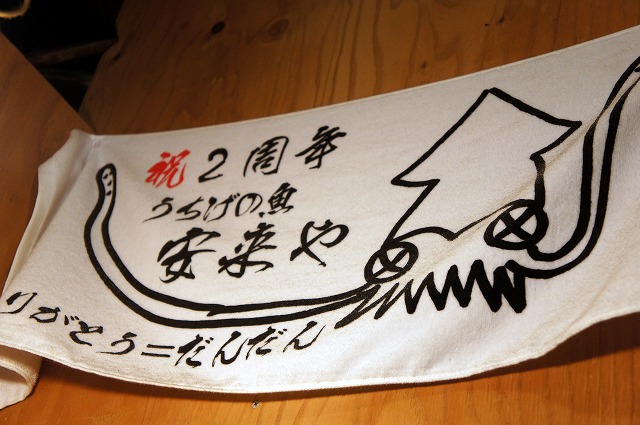 祝2周年
うちげの魚
安来や
りがとう=だんだん